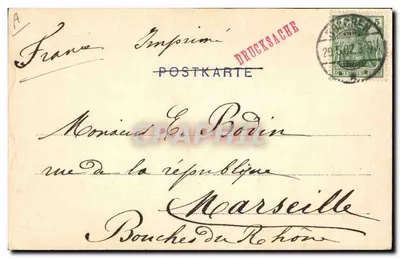 A
France Imprimé
DRUCKSACHE
POSTKARTE
Monsieur E. Bodin
rue de la république
Marseille
Bouches du Rhône